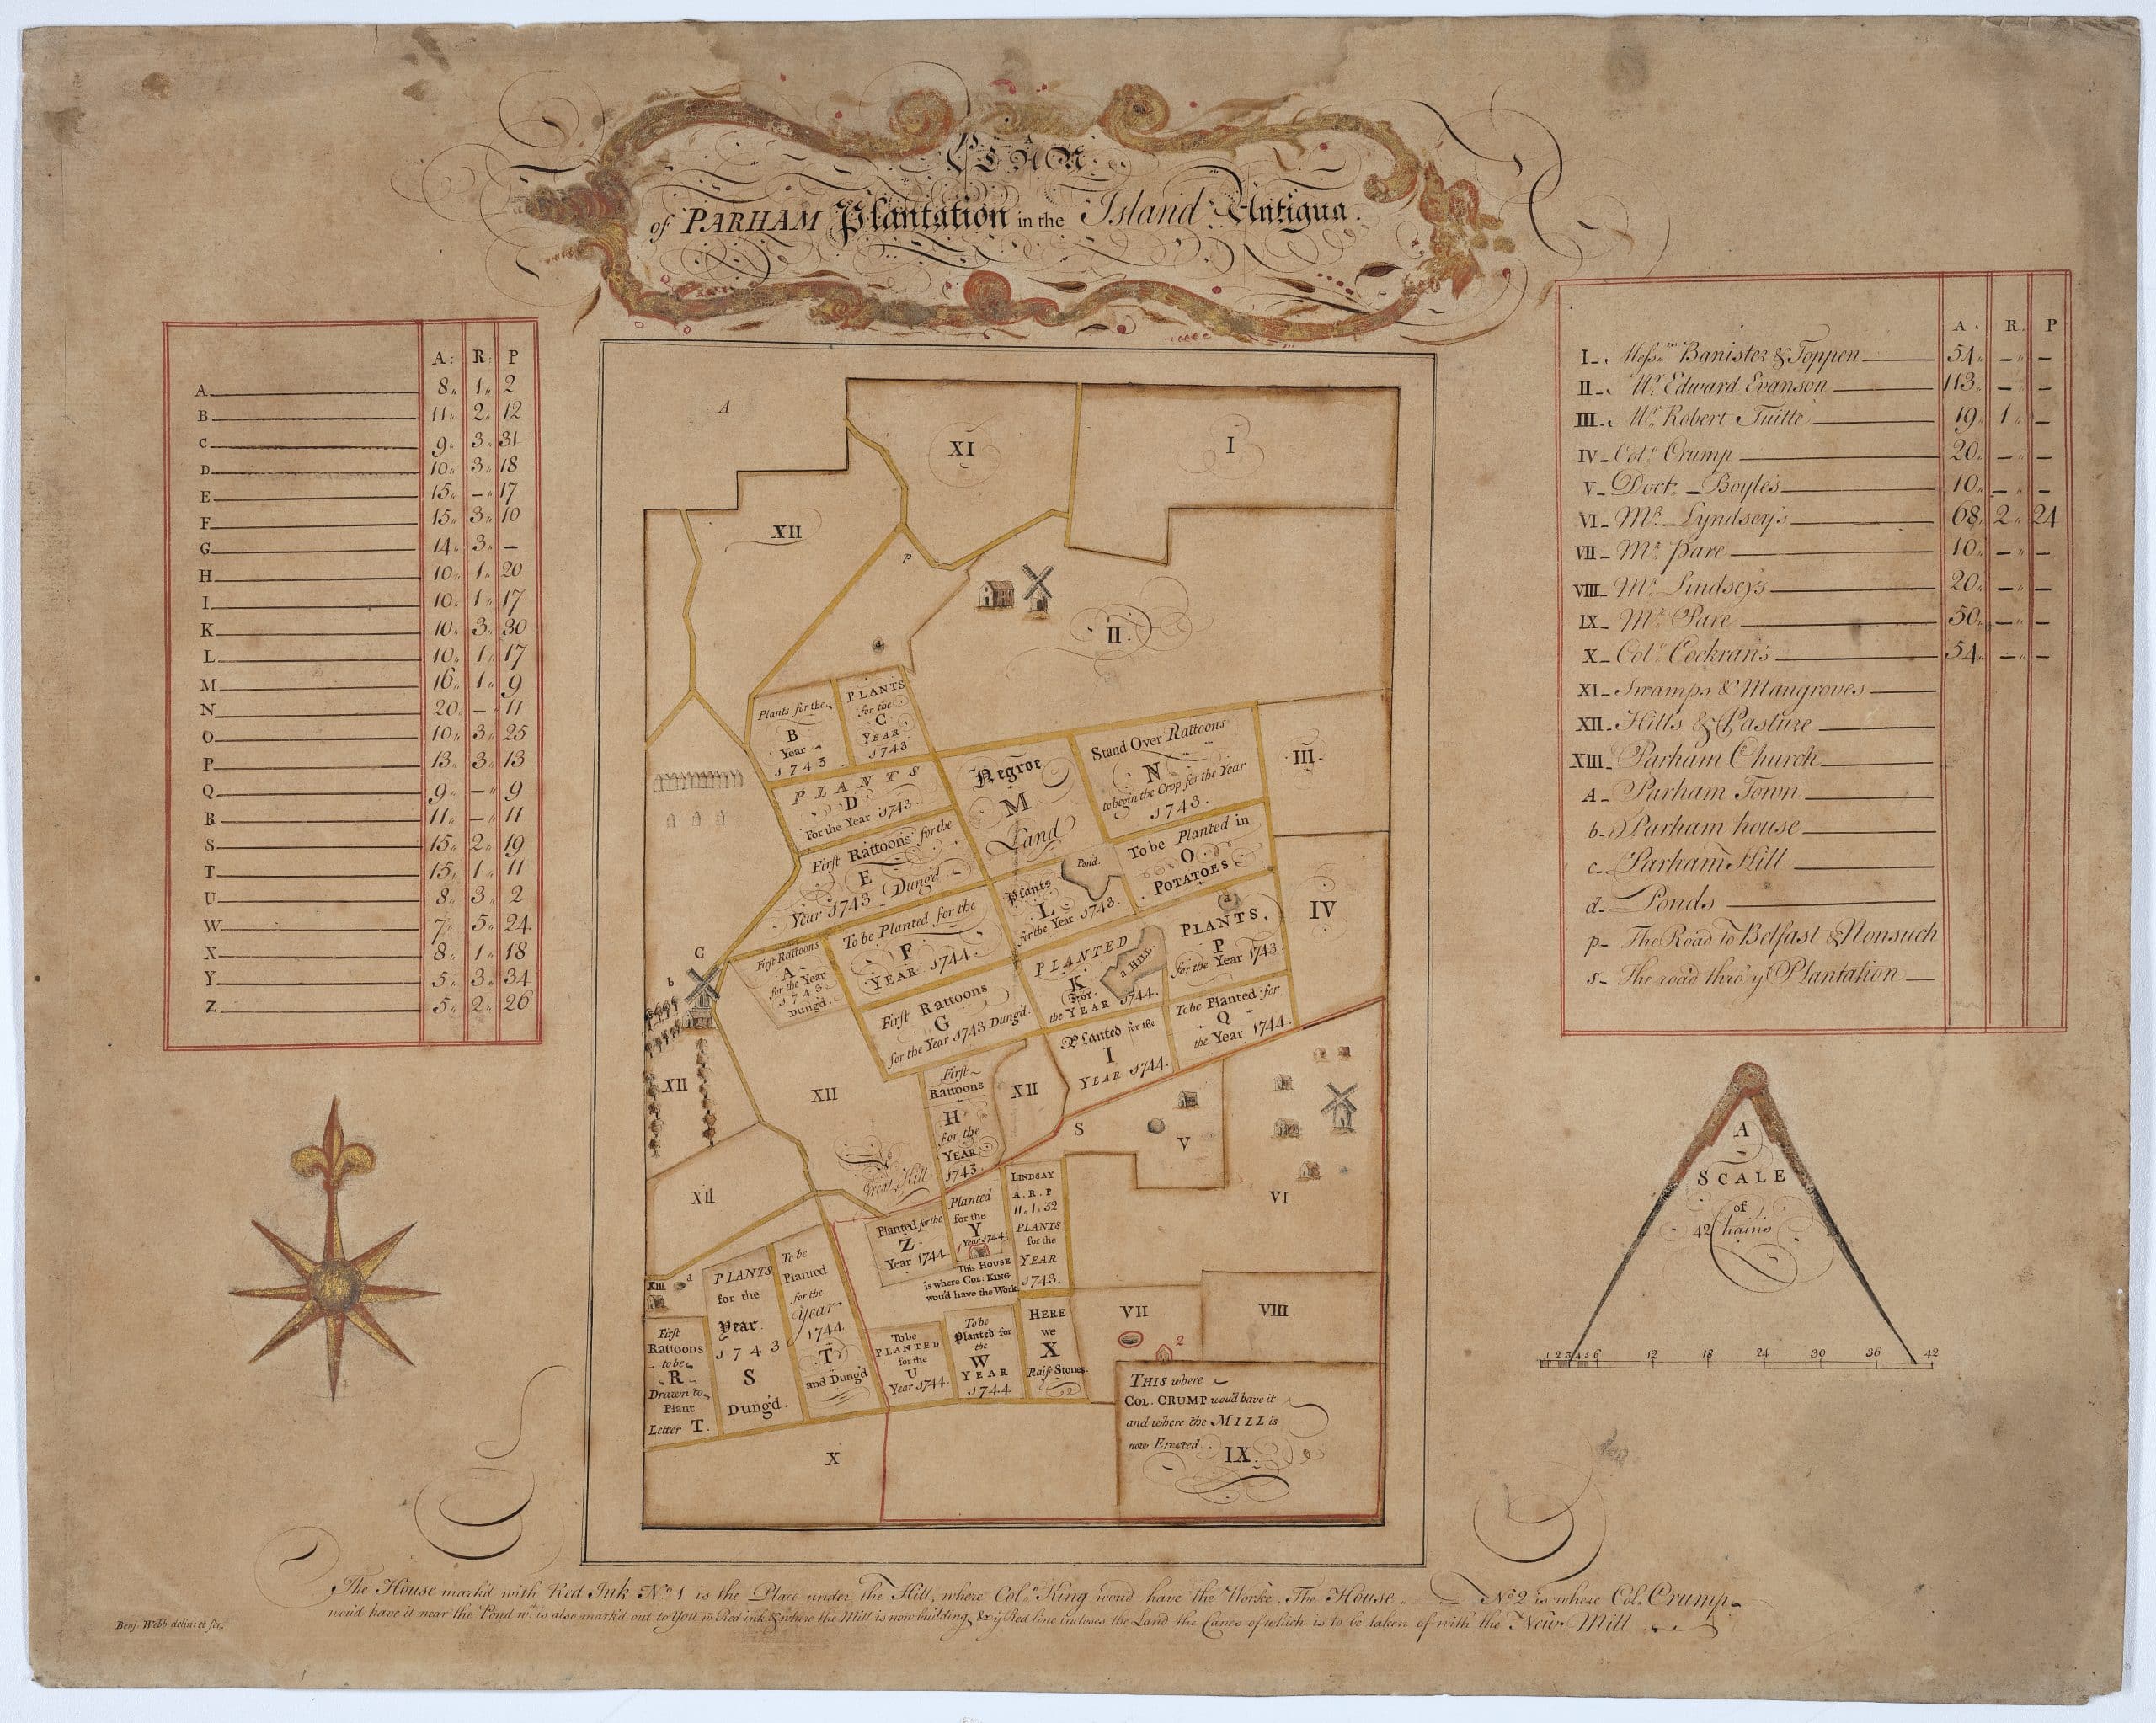 A
PLAN
of PARHAM Plantation in the Island Antigua.
A: R: P
A 8" 1" 2
B 11" 2" 12
C 9" 3" 31
D 10" 3" 18
E 15" –" 17
F 15" 3" 10
G 14" 3" –
H 10" 1" 20
I 10" 1" 17
K 10" 3" 30
L 10" 1" 17
M 16" 1" 9
N 20" –" 11
O 10" 3" 25
P 13" 3" 13
Q 9" –" 9
R 11" –" 11
S 15" 2" 19
T 15" 1" 11
U 8" 3" 2
W 7" 5" 24
X 8" 1" 18
Y 5" 3" 34
Z 5" 2" 26
A
XI
I
XII
p
II.
d
Plants for the
B
Year
1743
PLANTS
for the
C
YEAR
1743
PLANTS
D
For the Year 1743.
Negroe
M
Land
Stand Over Rattoons
N
to begin the Crop for the Year
1743.
III.
First Rattoons for the
E
Year 1743 Dungd
Pond.
To be Planted in
O
POTATOES
Plants
L
for the Year 1743.
To be Planted for the
F
YEAR 1744.
First Rattoons
A
for the Year
1743
Dungd.
C
b
d
PLANTS,
P
for the Year 1743
IV
PLANTED
K
For
the YEAR 1744.
a HILL.
First Rattoons
G
for the Year 1743 Dungd.
To be Planted for
Q
the Year 1744.
Planted for the
I
YEAR 1744.
XII
XII
First
Rattoons
H
for the
YEAR
1743.
XII
S
V
VI
XII
Great Hill
LINDSAY
A. R. P
11. 1. 32
PLANTS
for the
YEAR
1743.
Planted
for the
Y
Year 1744
1
Planted for the
Z
Year 1744
This HOUSE
is where COL: KING
woud have the Work
XIII
d
PLANTS
for the
Year
1743
S
Dungd.
To be
Planted
for the
Year
1744
T
and Dungd
First
Rattoons
to be
R
Drawn to
Plant
Letter T.
To be
PLANTED
for the
U
Year 1744.
To be
Planted for
the
W
YEAR
1744
HERE
we
X
Raise Stones.
VII
VIII
2
THIS where
COL. CRUMP woud have it
and where the MILL is
now Erected.
IX
X
A. R. P
I Messrs Banister & Toppen 54" –" –
II Mr Edward Evanson 113" –" –
III Mr Robert Tuitte 19" 1" –
IV Colo Crump 20" –" –
V Doctr Boyles 10" –" –
VI Mr Lyndsey's 68" 2" 24
VII Mr Pare 10" –" –
VIII Mr Lindseys 20" –" –
IX Mr Pare 50" –" –
X Colo Cockran's 54" –" –
XI Swamps & Mangroves
XII Hills & Pasture
XIII Parham Church
A Parham Town
b Parham house
c Parham Hill
d Ponds
p The Road to Belfast & Nonsuch
s The road thro' ye Plantation
A
SCALE
of
42 Chains
1 2 3 4 5 6 12 18 24 30 36 42
The House markd with Red Ink No 1 is the Place under the Hill, where Colo King woud have the Worke. The House No 2 is where Col. Crump
woud have it near the Pond wch is also markd out to You in Red ink & where the Mill is now building, & ye Red line incloses the Land the Canes of which is to be taken of with the New Mill
Benj. Webb delin: et fec.